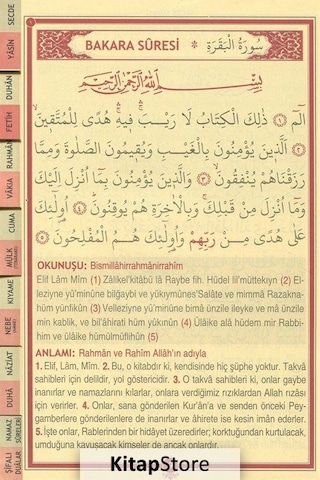 BAKARA SÛRESİ * سُورَةُ الْبَقَرَةِ
بِسْمِ اللّٰهِ الرَّحْمٰنِ الرَّحِيمِ
الٓمٓ ﴿١﴾ ذٰلِكَ الْكِتَابُ لَا رَيْبَ فِيهِ هُدًى لِلْمُتَّقِينَ
﴿٢﴾ اَلَّذِينَ يُؤْمِنُونَ بِالْغَيْبِ وَيُقِيمُونَ الصَّلٰوةَ وَمِمَّا
رَزَقْنَاهُمْ يُنْفِقُونَ ﴿٣﴾ وَالَّذِينَ يُؤْمِنُونَ بِمَا اُنْزِلَ اِلَيْكَ
وَمَا اُنْزِلَ مِنْ قَبْلِكَ وَبِالْاٰخِرَةِ هُمْ يُوقِنُونَ ﴿٤﴾ اُولٰئِكَ
عَلٰى هُدًى مِنْ رَبِّهِمْ وَاُولٰئِكَ هُمُ الْمُفْلِحُونَ ﴿٥﴾
OKUNUŞU: Bismillâhirrahmânirrahîm
Elif Lâm Mîm (1) Zâlikel'kitâbü lâ Raybe fih. Hüdel lil'müttekıyn (2) El-
lezîyne yü'minûne bilğaybi ve yükıymûnes'Salâte ve mimmâ Razakna-
hüm yünfikûn (3) Vellezîyne yü'minûne bimâ ünzile ileyke ve mâ ünzile
min kablik, ve bil'âhirati hüm yûkınûn (4) Ülâike alâ hüdem mir Rabbi-
him ve ülâike hümülmüflihûn (5)
ANLAMI: Rahmân ve Rahîm Allâh'ın adıyla
1. Elif, Lâm, Mîm. 2. Bu, o kitabdır ki, kendisinde hiç şüphe yoktur. Takvâ
sahibleri için delildir, yol göstericidir. 3. O takvâ sahibleri ki, onlar gaybe
inanırlar ve namazlarını kılarlar, onlara verdiğimiz rızıklardan Allah rızâsı
için verirler. 4. Onlar, sana gönderilen Kur'ân'a ve senden önceki Pey-
gamberlere gönderilenlere de inanırlar ve âhirete ise kesin imân ederler.
5. İşte onlar, Rablerinden bir hidâyet üzeredirler; korktuğundan kurtulacak,
umduğuna kavuşacak kimseler de ancak onlardır.
SECDE
YÂSÎN
DUHÂN
FETİH
RAHMÂN
VÂKIA
CUMA
MÜLK
KIYAME
NEBE
NÂZİÂT
DUHÂ
NAMAZ SÛRELERİ
ŞİFALI DUÂLAR
KitapStore